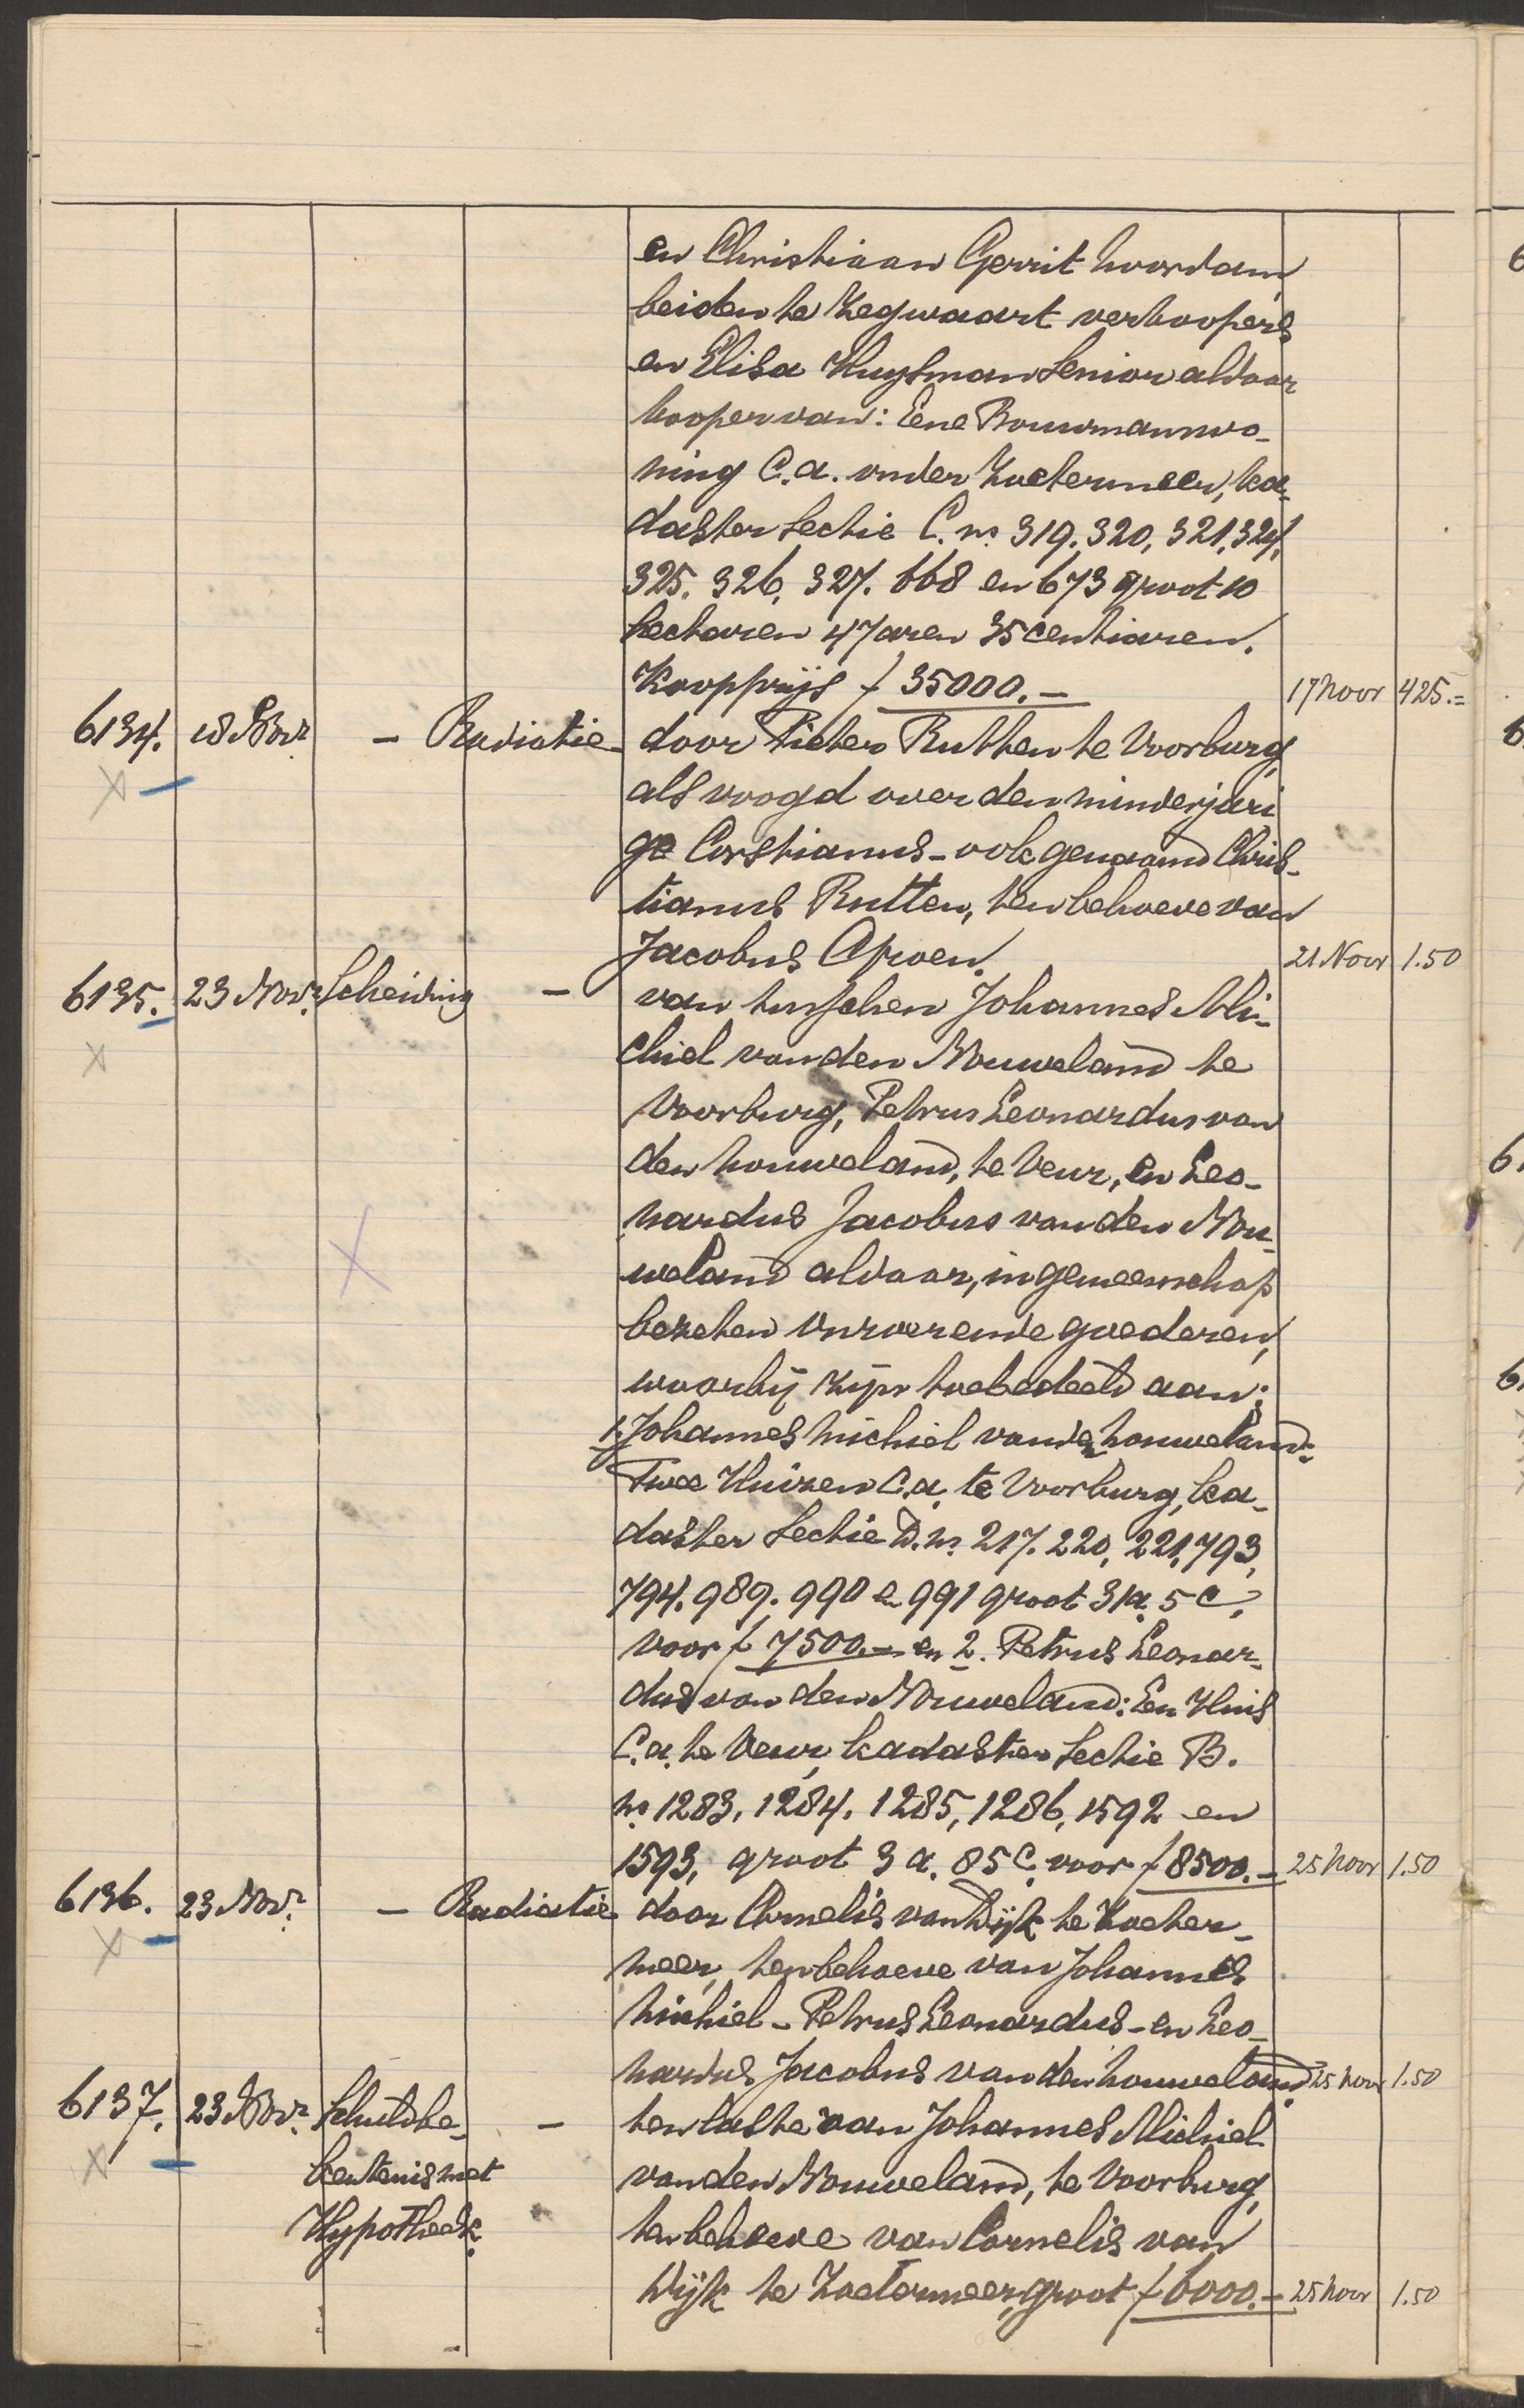 en Christiaan Gerrit Noordam,
beiden te Zegwaart verkoopers
en Elisa Huysman Senior aldaar
kooper van: Eene Bouwmanswo-
ning C.a. onder Zoetermeer, ka-
daster Sectie C. no 319. 320, 321, 324,
325. 326. 327. 668 en 673 groot 10
hectaren 47 aren 35 centiaren.
Koopprijs f 35000.— 17 Novr 425.=
6134. 18 Novr — Radiatie door Pieter Rutten te Voorburg,
als voogd over den minderjari
ge Corstianus - ook genaamd Chris-
tianus Rutten, ten behoeve van
Jacobus 21 Novr 1.50
6135. 23 Novr. Scheiding — van tusschen Johannes Mi-
chiel van den Nouweland te
Voorburg, Petrus Leonardus van
den Nouweland, te Veur, en Leo-
nardus Jacobus van den Nou-
weland aldaar, in gemeenschap
bezeten onroerende goederen,
waarbij zijn toebedeeld aan:
1. Johannes Michiel van den Nouweland:
Twee Huizen C.a. te Voorburg, ka-
daster Sectie D. no. 217. 220, 221, 793,
794. 989. 990 en 991 groot 31 a. 5 c,
voor f 7500.— en 2. Petrus Leonar-
dus van den Nouweland: Een Huis
C.a. te Veur, kadaster Sectie B.
no 1283, 1284, 1285, 1286, 1592 en
1593, groot 3 a. 85 c. voor f 8500.— 25 Novr 1.50
6136. 23 Novr. — Radiatie door Cornelis van Wijk te Zoeter-
meer, ten behoeve van Johannes
Michiel - Petrus Leonardus - en Leo-
nardus Jacobus van den Nouweland. 25 Novr 1.50
6137. 23 Novr. Schuldbe- — ten laste van Johannes Michiel
kentenis met van den Nouweland, te Voorburg,
Hypotheek. ten behoeve van Cornelis van
Wijk te Zoetermeer, groot f 6000.— 25 Novr 1.50